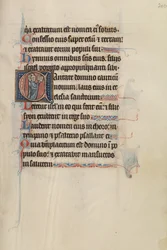 exaltatum est nomen eius solius
Confessio eius super celum et terram
et exaltavit cornu populi sui
ymnus omnibus sanctis eius filiis
israel populo appropinquanti sibi
Cantate domino canticum
novum laus eius in ec
clesia sanctorum
Letetur israel in eo qui fecit eum et filie
syon exultent in rege suo
Laudent nomen eius in choro in
tympano et psalterio psallant ei
Quia beneplacitum est domino in po
pulo suo et exaltabit mansuetos
in salutem